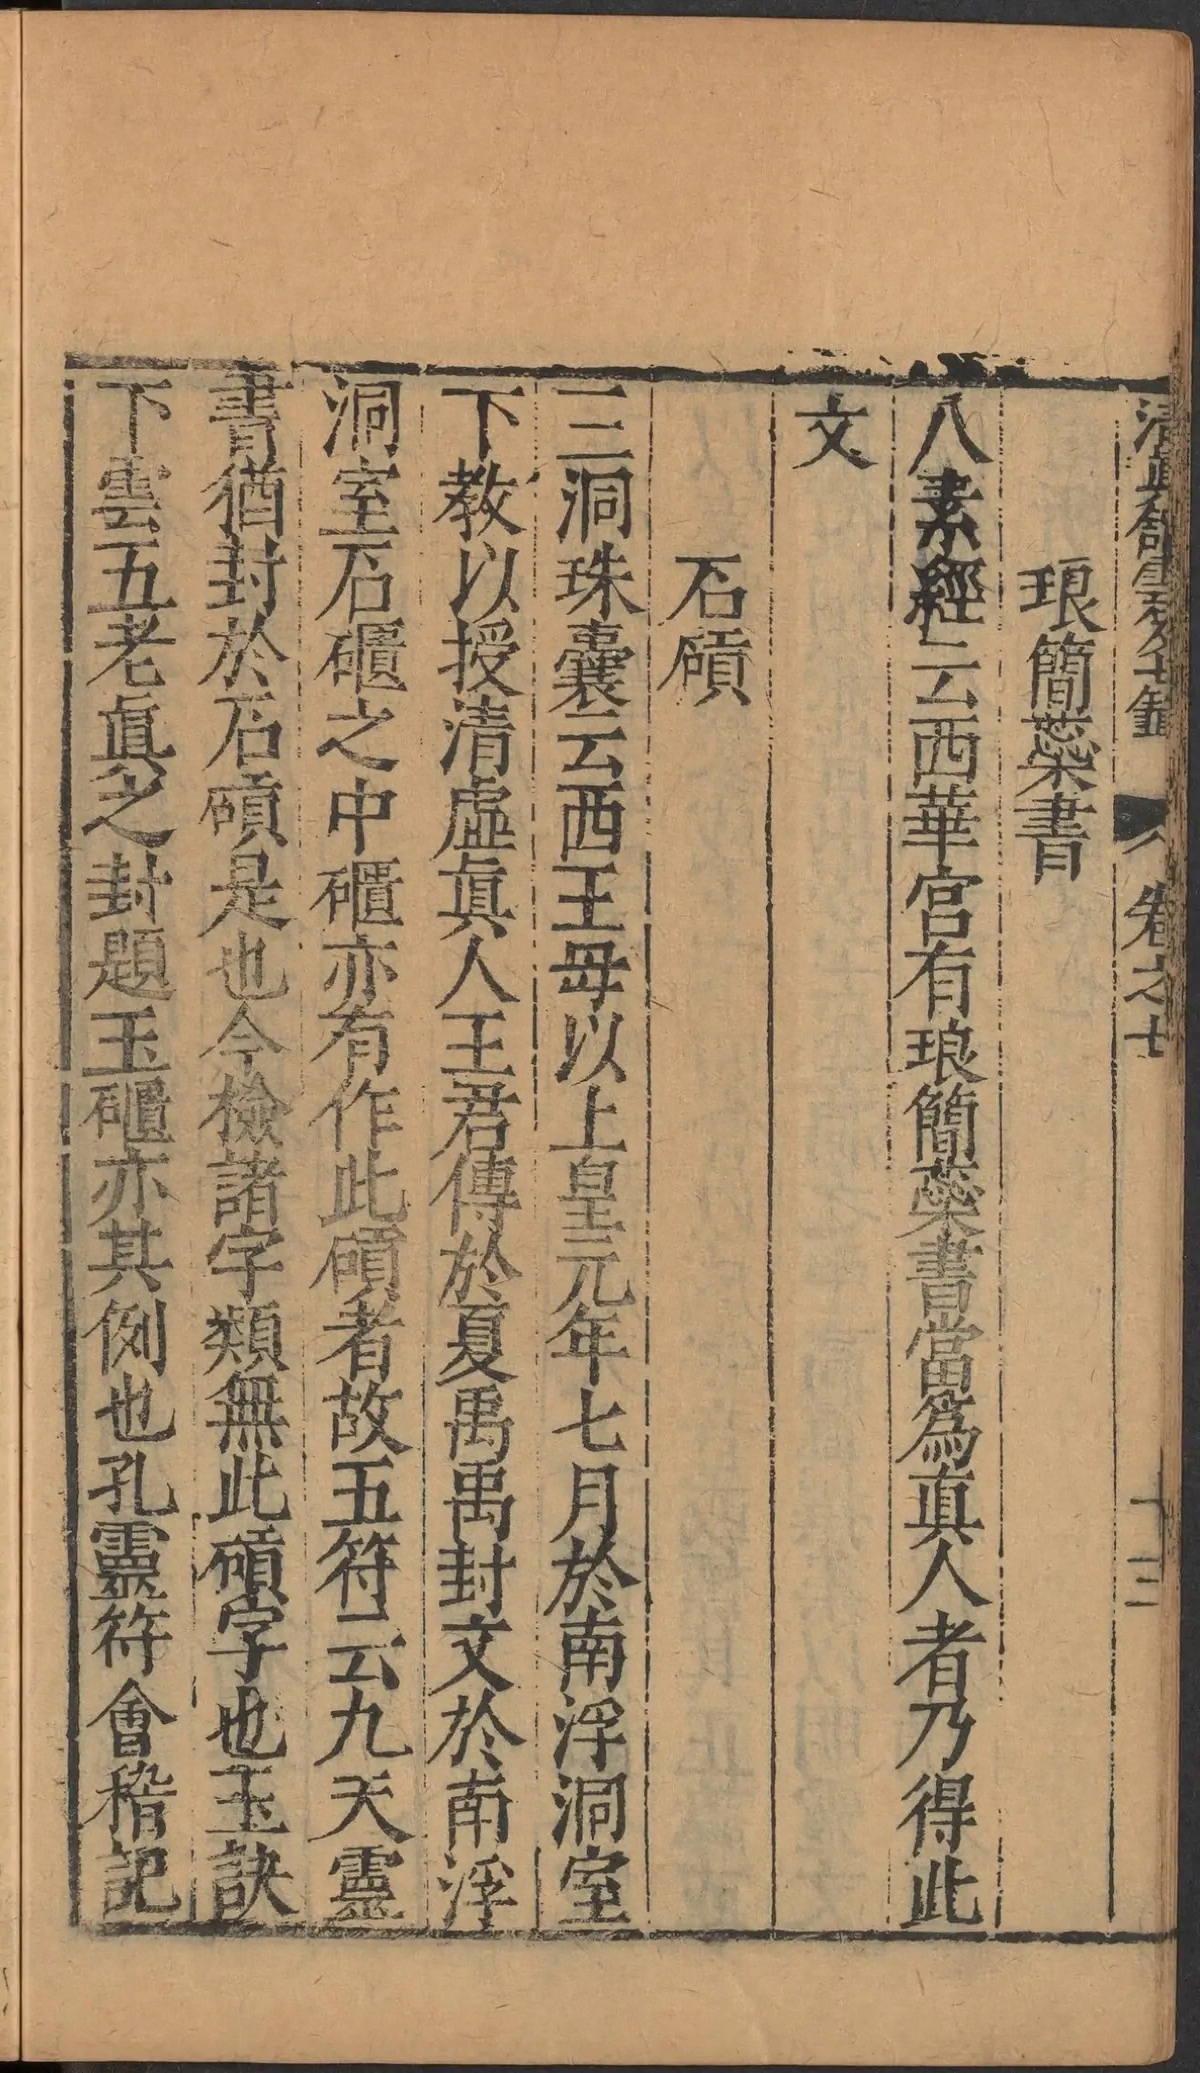 清眞舘雲笈七籖 卷之七 十三
琅簡蘂書
八素經云西華宮有琅簡蘂書當爲真人者乃得此
文
石䃮
三洞珠囊云西王母以上皇元年七月於南浮洞室
下教以授清虛眞人王君傳於夏禹禹封文於南浮
洞室石𥖎之中𥖎亦有作此䃮者故五符云九天靈
書猶封於石䃮是也今檢諸字類無此䃮字也玉訣
下雲五老眞之封題玉𥖎亦其例也孔靈符會稽記